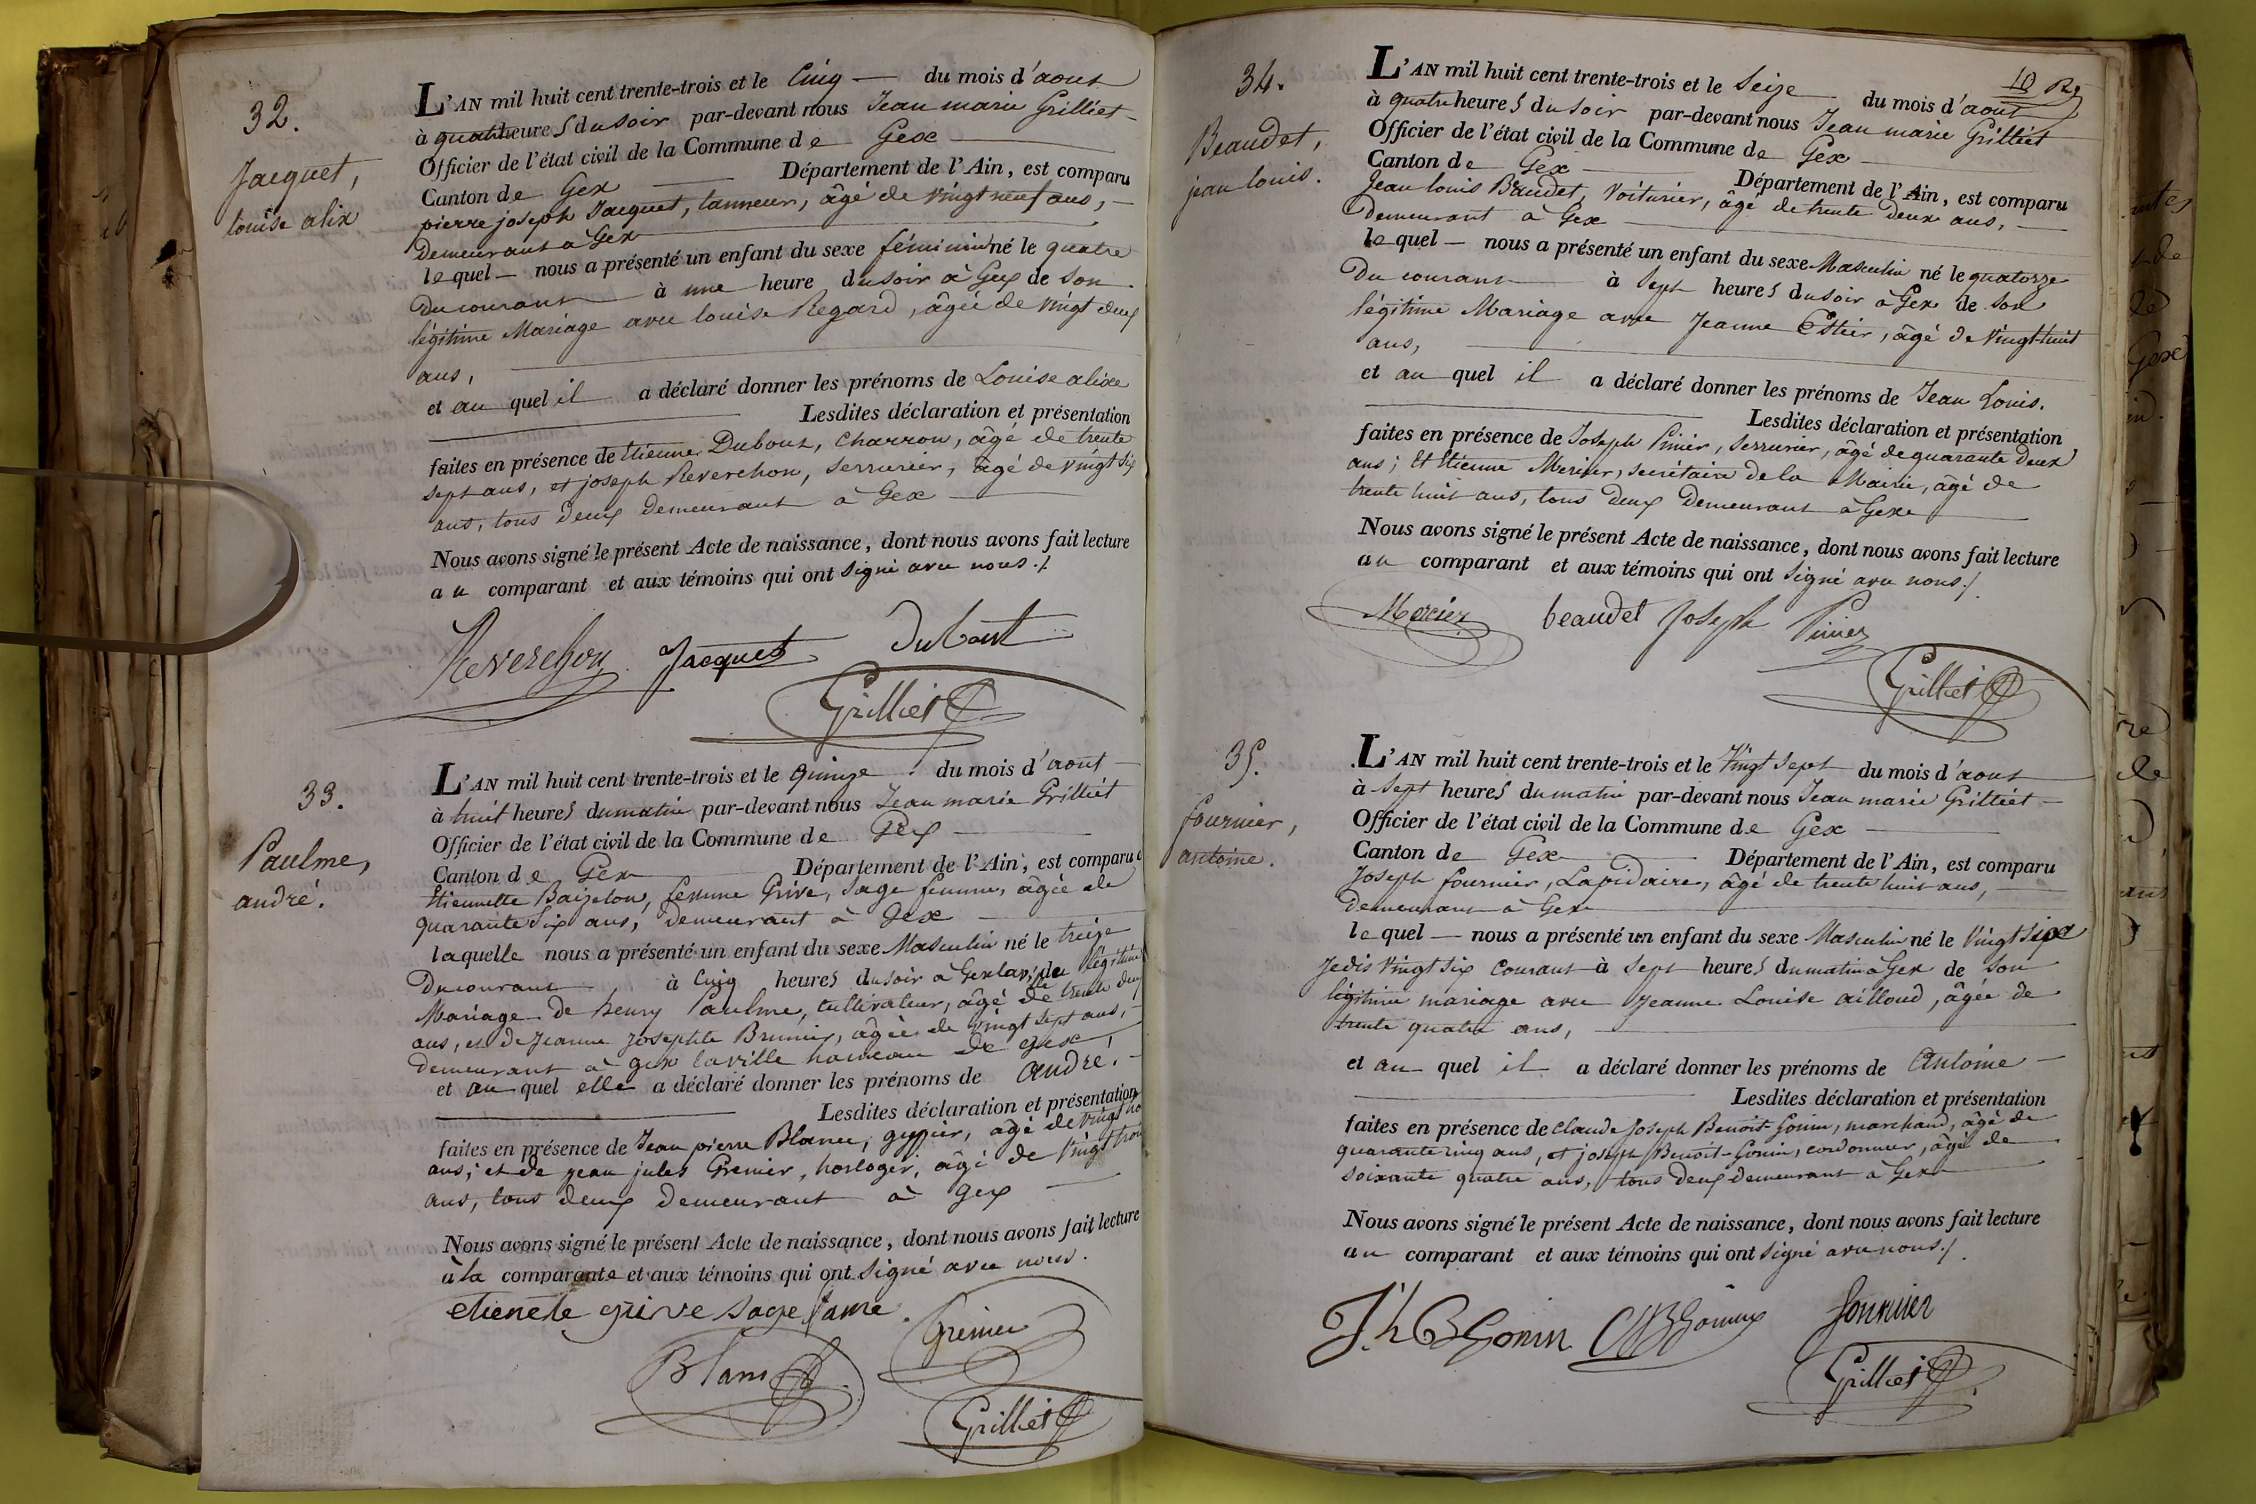 32.
Jacquet,
louise alix
L'AN mil huit cent trente-trois et le Cinq du mois d'aout
à quatre heures du soir par-devant nous Jean marie Grilliet
Officier de l'état civil de la Commune de Gex
Canton de Gex Département de l'Ain, est comparu
pierre joseph Jacquet, tanneur, âgé de vingt neuf ans,
Demeurant à Gex
lequel nous a présenté un enfant du sexe féminin né le quatre
Du courant à une heure du soir à Gex de son
légitime Mariage avec louise Regard, âgée de vingt deux
ans,
et au quel il a déclaré donner les prénoms de Louise alixe
Lesdites déclaration et présentation
faites en présence de Etienne Dubout, charron, âgé de trente
sept ans, et joseph Reverchon, serrurier, âgé de vingt six
ans, tous deux demeurant à Gex
Nous avons signé le présent Acte de naissance, dont nous avons fait lecture
au comparant et aux témoins qui ont signé avec nous ./.
Reverchon Jacquet Dubout
Grilliet
33.
Paulme,
andré.
L'AN mil huit cent trente-trois et le quinze du mois d'aout
à huit heures du matin par-devant nous Jean marie Grilliet
Officier de l'état civil de la Commune de Gex
Canton de Gex Département de l'Ain, est comparue
Etiennette Baizelon, femme Grive, sage femme, âgée de
quarante six ans, demeurant à Gex
laquelle nous a présenté un enfant du sexe Masculin né le treize
Du courant à Cinq heures du soir à Gex la ville légitime
Mariage de henry Paulme, cultivateur, âgé de trente deux
ans, et de Jeanne Josephte Brunier, âgée de vingt sept ans,
demeurant à gex la ville hameau de gex,
et au quel elle a déclaré donner les prénoms de andré.
Lesdites déclaration et présentation
faites en présence de Jean pierre Blanc, gypier, âgé de vingt
ans; et de jean jules Grenier, horloger, âgé de vingt trois
ans, tous deux demeurant à gex
Nous avons signé le présent Acte de naissance, dont nous avons fait lecture
à la comparante et aux témoins qui ont signé avec nous.
etienete grive sage fame
Grenier
Blanc
Grilliet
10
34.
Beaudet,
jean louis.
L'AN mil huit cent trente-trois et le Seize du mois d'aout
à quatre heures du soir par-devant nous Jean marie Grilliet
Officier de l'état civil de la Commune de Gex
Canton de Gex Département de l'Ain, est comparu
Jean louis Beaudet, Voiturier, âgé de trente deux ans,
Demeurant à Gex
lequel nous a présenté un enfant du sexe Masculin né le quatorze
Du courant à Sept heures du soir à Gex de son
légitime Mariage avec Jeanne Estier, âgé de vingt huit
ans,
et au quel il a déclaré donner les prénoms de Jean Louis.
Lesdites déclaration et présentation
faites en présence de Joseph Pinier, serrurier, âgé de quarante deux
ans; Et Etienne Mercier, secrétaire de la Mairie, âgé de
trente huit ans, tous deux Demeurant à Gex
Nous avons signé le présent Acte de naissance, dont nous avons fait lecture
au comparant et aux témoins qui ont signé avec nous ./.
Mercier beaudet Joseph Pinier
Grilliet
35.
fournier,
antoine.
L'AN mil huit cent trente-trois et le Vingt sept du mois d'aout
à Sept heures du matin par-devant nous Jean marie Grilliet
Officier de l'état civil de la Commune de Gex
Canton de Gex Département de l'Ain, est comparu
Joseph fournier, Lapidaire, âgé de trente huit ans,
Demeurant à Gex
lequel nous a présenté un enfant du sexe Masculin né le Vingt six
Je dis Vingt six Courant à Sept heures du matin à Gex de son
légitime mariage avec Jeanne Louise ailloud, âgée de
trente quatre ans,
et au quel il a déclaré donner les prénoms de Antoine
Lesdites déclaration et présentation
faites en présence de Claude Joseph Benoit-Gonin, marchand, âgé de
quarante cinq ans, et joseph Benoit-Gonin, cordonnier, âgé de
soixante quatre ans, tous deux demeurant à Gex
Nous avons signé le présent Acte de naissance, dont nous avons fait lecture
au comparant et aux témoins qui ont signé avec nous ./.
Jh BGonin CJBGonin fournier
Grilliet